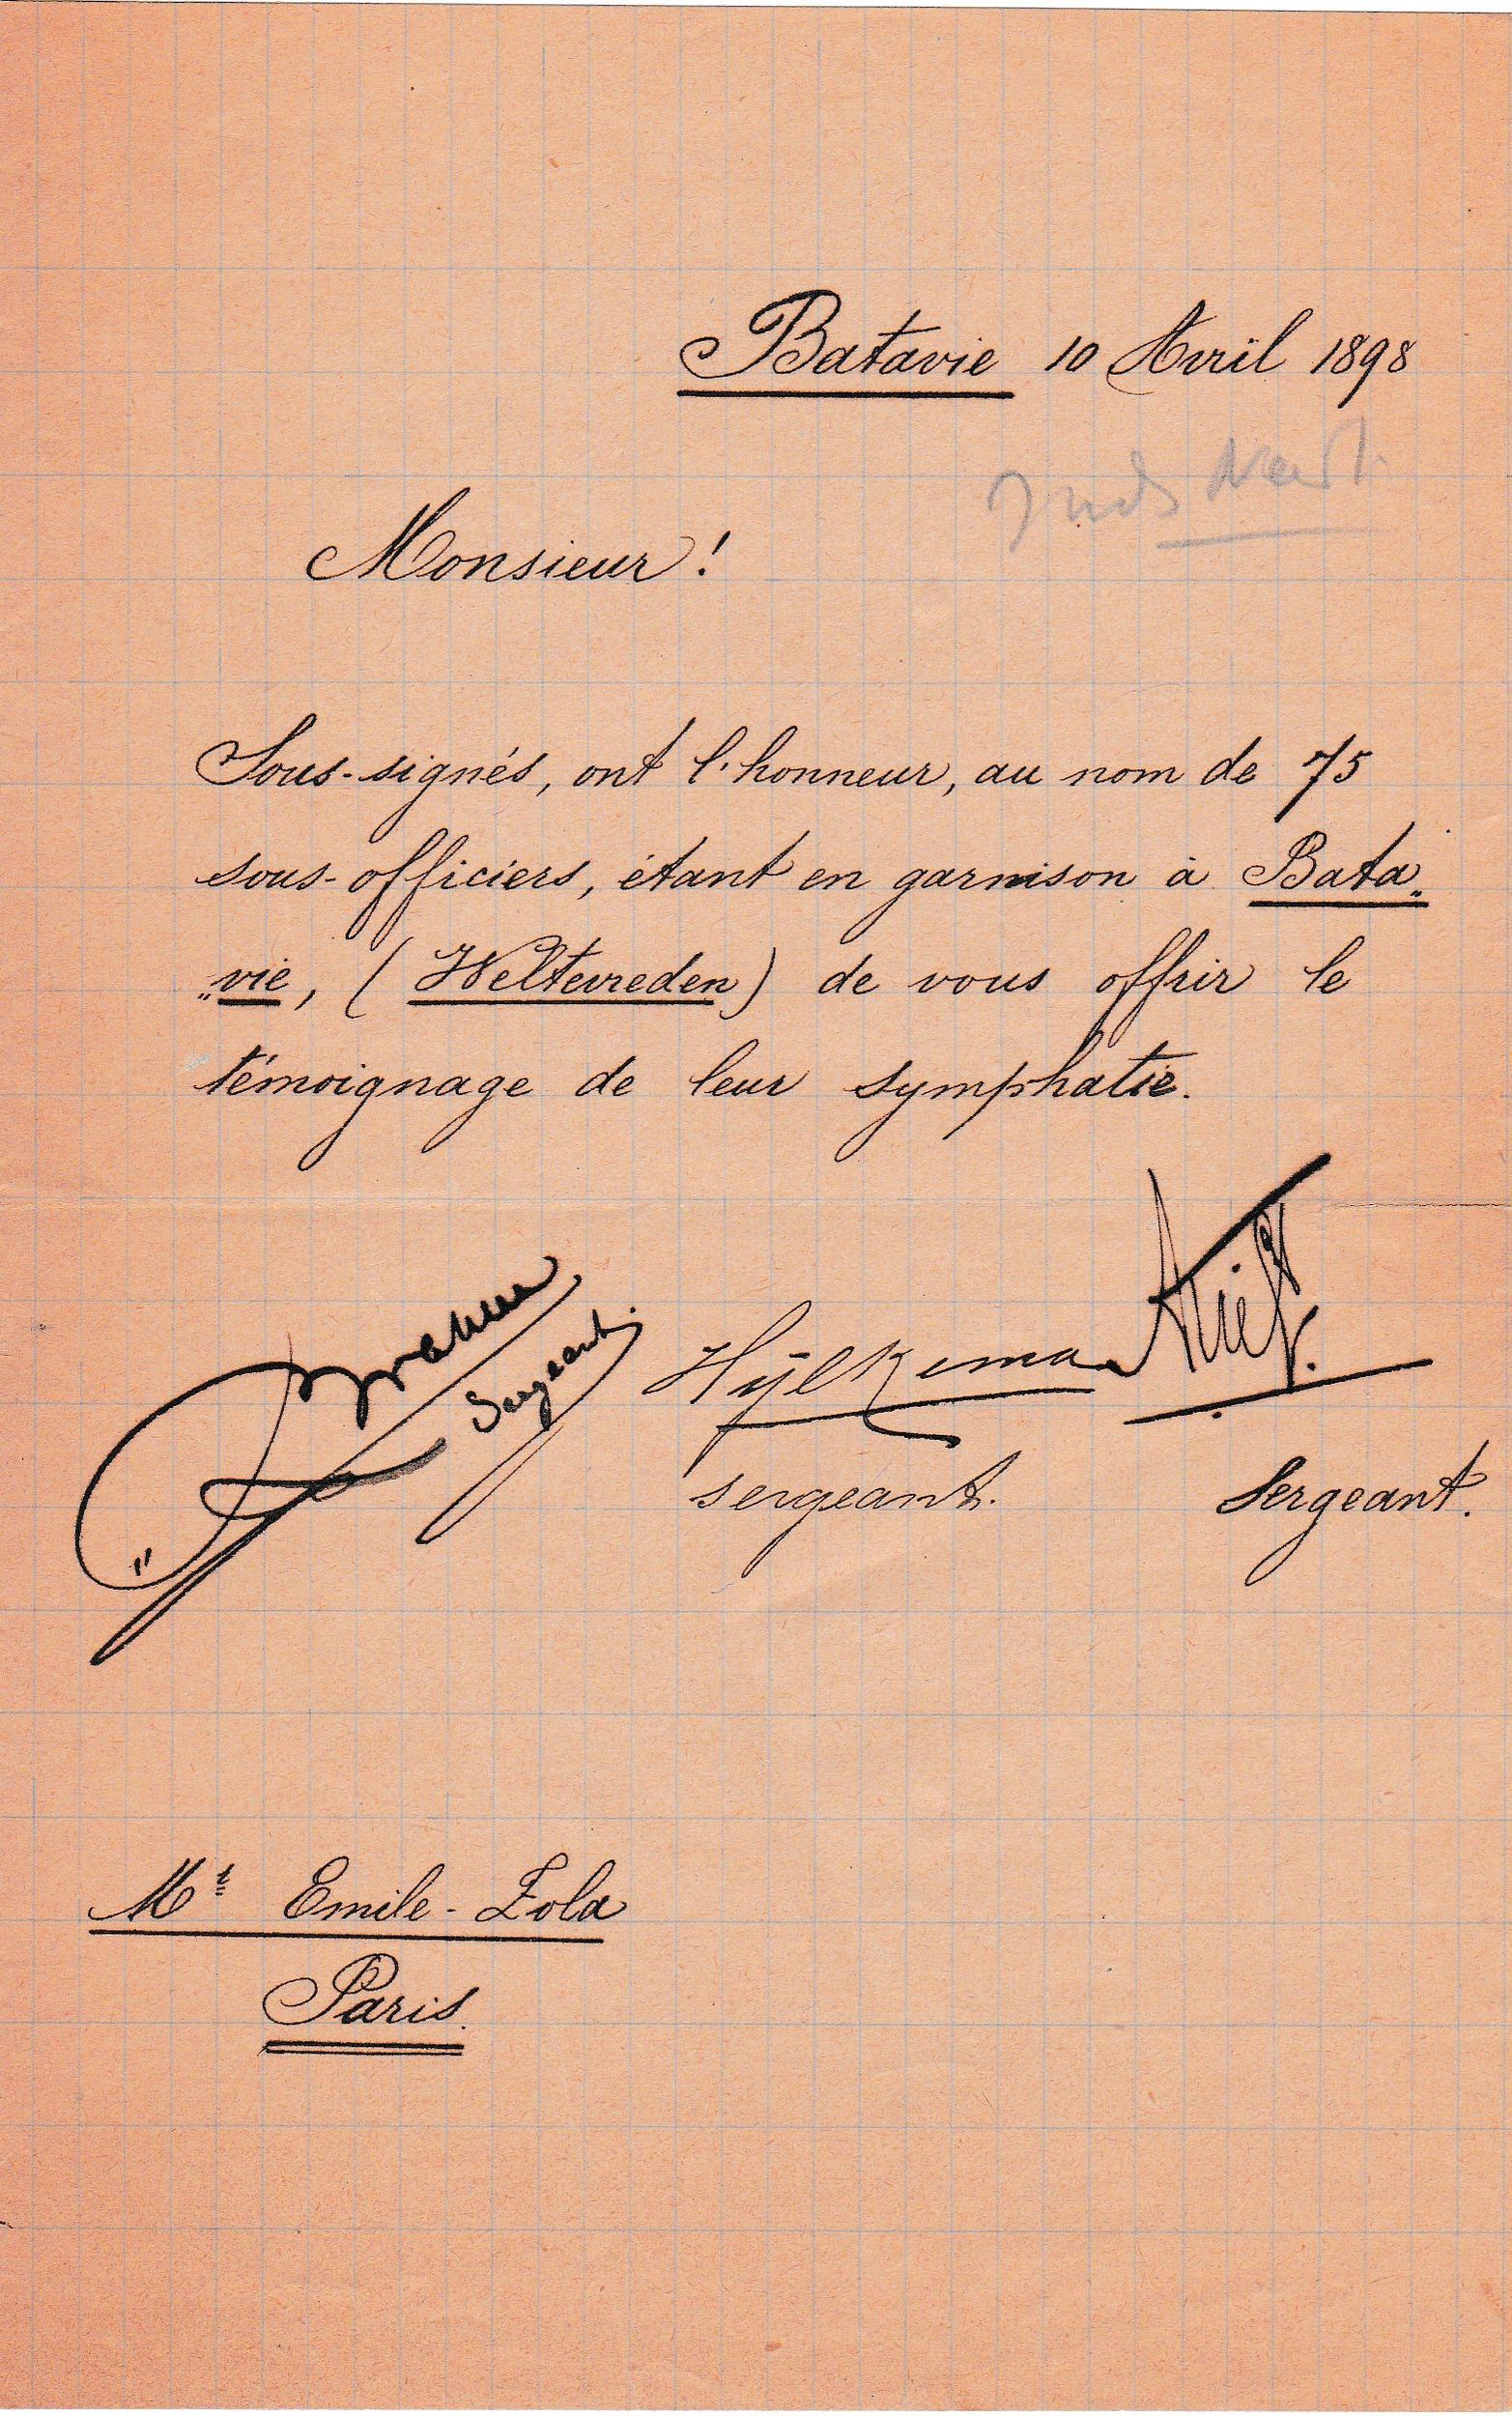 Batavie 10 Avril 1898
Monsieur!
Sous-signés, ont l'honneur, au nom de 75
sous-officiers, étant en garnison à Bata„
„vie, (Weltevreden) de vous offrir le
témoignage de leur symphatie.
Sergeant.
Hÿlkema
sergeant.
Sergeant.
Mr Emile-Zola
Paris.